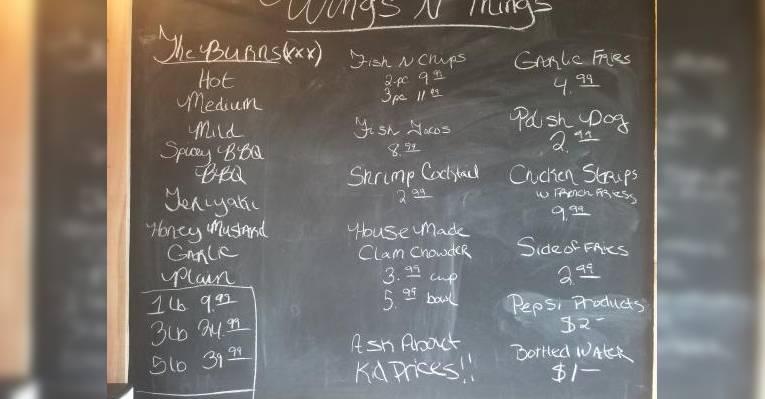 Wings N Things
The Burns (xxx)
Hot
Medium
Mild
Spicey BBQ
BBQ
Teriyaki
Honey Mustard
Garlic
Plain
1 lb 9.99
3 lb 24.99
5 lb 39.99
Fish N Chips
2 pc 9.99
3 pc 11.99
Fish Tacos
8.99
Shrimp Cocktail
2.99
House Made
Clam Chowder
3.99 cup
5.99 bowl
Ask About
Kid Prices!!
Garlic Fries
4.99
Polish Dog
2.99
Chicken Strips
w French Fries
9.99
Side of Fries
2.99
Pepsi Products
$2-
Bottled Water
$1-